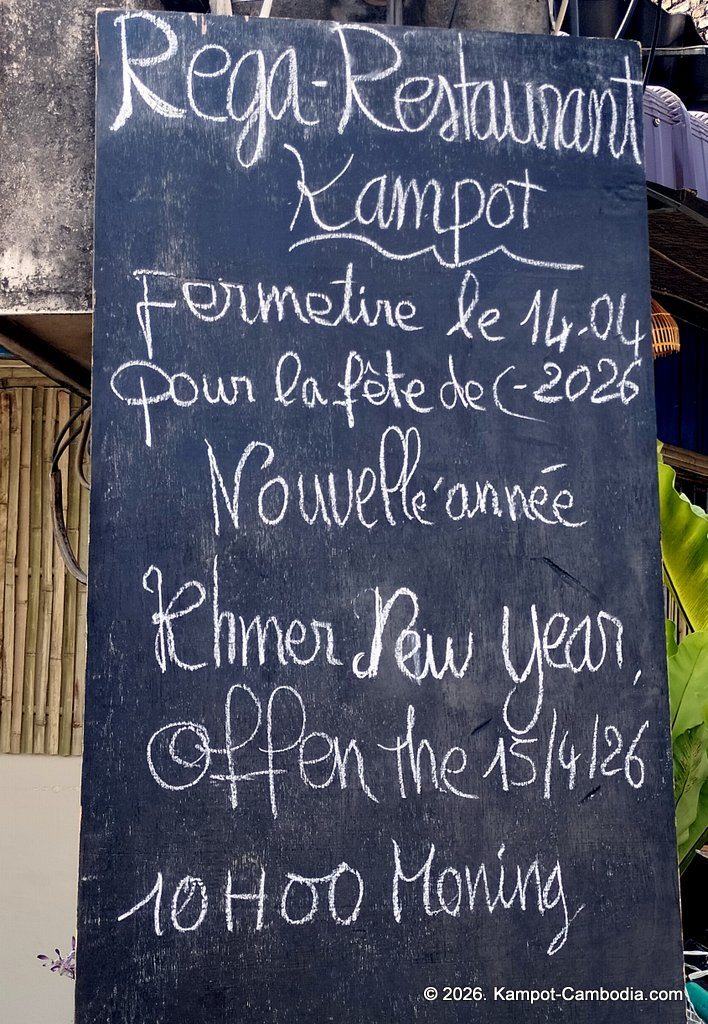 Rega-Restaurant
Kampot
Fermetire le 14.04
pour la fête de (-2026
Nouvelle année
Khmer New year,
Offen the 15/4/26
10H00 Moning
© 2026. Kampot-Cambodia.com